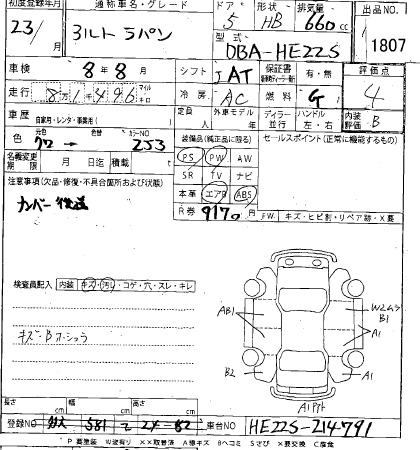 初度登録年月 通称車名・グレード ドア 形状 排気量 出品NO.
23/ 月 アルト ラパン 5 HB 660 cc
型式 DBA-HE22S 1807
車検 8年8月 シフト AT 保証書 有・無 評価点
走行 8万1千496 マイル キロ 冷房 AC 燃料 G 4
車歴 自家用・レンタ・事業用( ) 定員 外車モデル年 ディーラー 並行 ハンドル 左・右 内装評価 B
色 元色 クロ → 色替 カラーNO 253 装備品(純正品に限る) セールスポイント(正常に機能するもの)
名義変更期限 月 日迄 積載 PS PW AW
SR TV ナビ
注意事項(欠品・修復・不具合箇所および状態) 本革 エアB ABS
ナンバー後送 R券 9170 F.W. キズ・ヒビ割・リペア跡・X要
検査員記入 内装 キズ・汚れ・コゲ・穴・スレ・キレ
AB1 B1
キズ・B A1
B2 A1
A1
長さ cm 幅 cm 高さ cm
登録NO 581 24-82 車台NO HE22S-214791
P要塗装 W波有り XX取替済 A線キズ Bヘコミ Sさび X要交換 C腐食